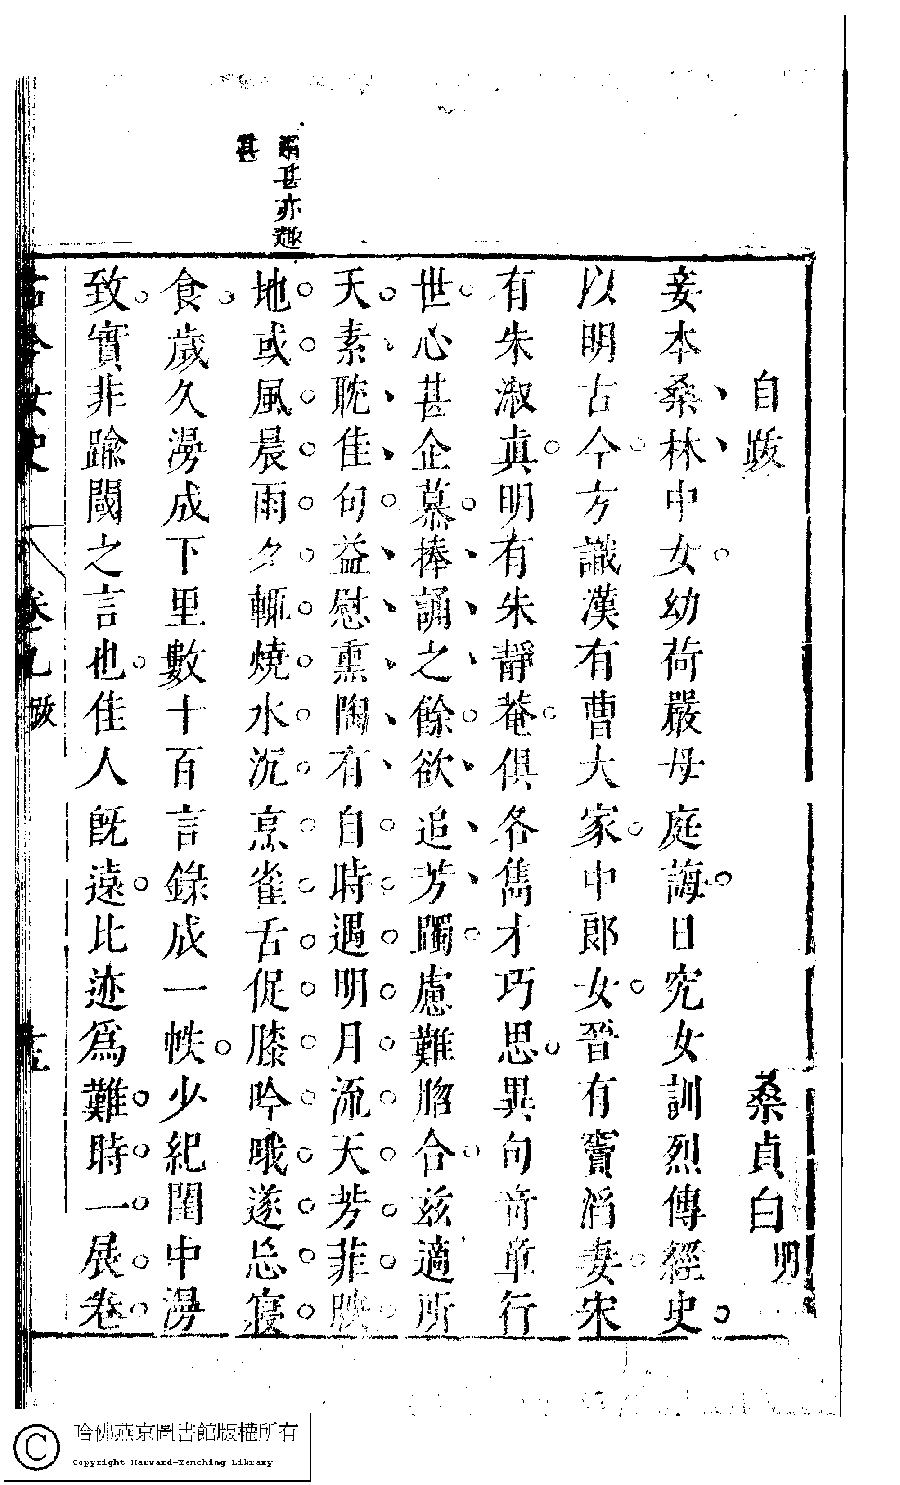 自跋
桑貞白明
妾本桑林中女幼荷嚴母庭誨日究女訓烈傳經史
以明古今方識漢有曹大家中郎女晉有竇滔妻宋
有朱淑真明有朱靜菴俱各雋才巧思異句奇章行
世心甚企慕捧誦之餘欲追芳躅慮難脗合兹適所
天素耽佳句益慰熏陶有自時遇明月流天芳菲映
地或風晨雨夕輒燒水沉烹雀舌促膝吟哦遂忘寢
食歲久漫成下里數十百言錄成一帙少紀閨中漫
致實非踰閾之言也佳人旣遠比迹爲難時一展卷
甚亦趣
甚
古今女史
卷九
跋
哈佛燕京圖書館版權所有
Copyright Harvard-Yenching Library